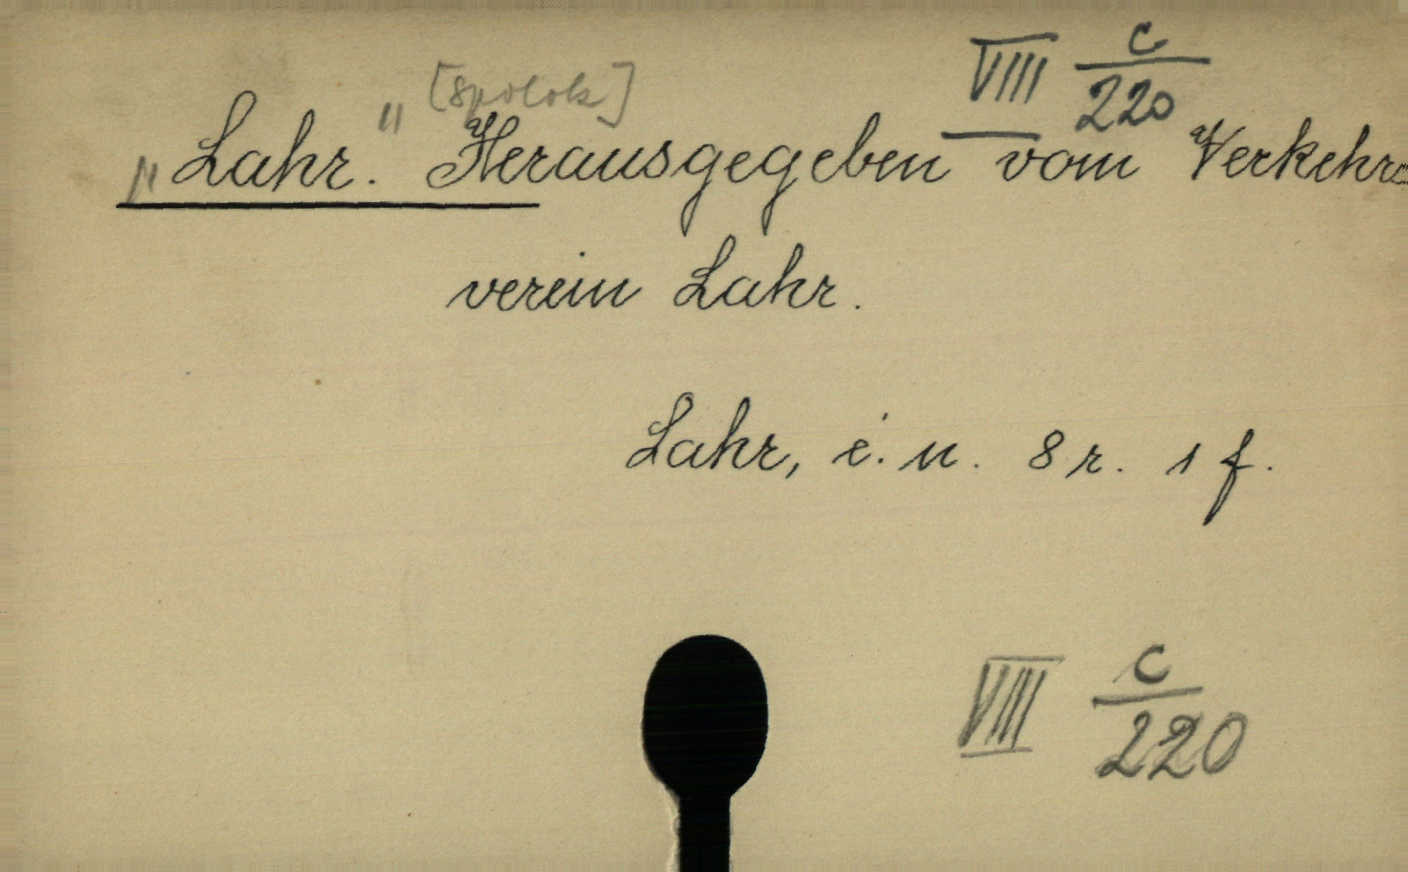 VIII c/220
[spolok]
„Lahr." Herausgegeben vom Verkehrs
verein Lahr.
Lahr, é. n. 8 r. 1 f.
VIII c/220